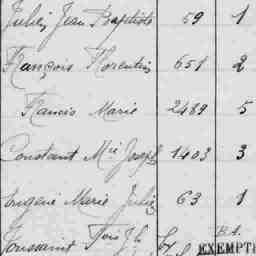 Julien Jean Baptiste 59 1
François Florentin 651 2
Francis Marie 2489 5
Constant Mie Joseph 1403 3
Eugène Marie Julien 63 1
Toussaint B.A.
EXEMPTÉ